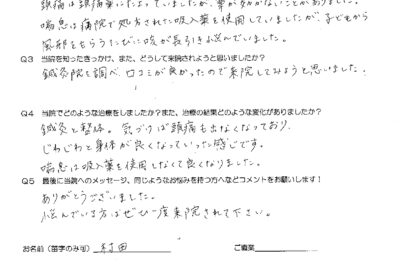 頭痛は頭痛薬にたよっていましたが、薬がきかないことがありました。
喘息は病院で処方された吸入薬を使用していましたが、子どもから
風邪をもらうたびに咳が長引き悩んでいました。
Q3 当院を知ったきっかけ、また、どうして来院されようと思いましたか?
鍼灸院を調べ、口コミが良かったので来院してみようと思いました!
Q4 当院でどのような治療をしましたか?また、治療の結果どのような変化がありましたか?
鍼灸と整体。気づけば頭痛も出なくなっており、
じわじわと身体が良くなっていった感じです。
喘息は吸入薬を使用しなくて良くなりました。
Q5 最後に当院へのメッセージ、同じようなお悩みを持つ方へなどコメントをお願いします!
ありがとうございました。
悩んでいる方はぜひ一度来院されて下さい。
お名前(苗字のみ可) 村田 ご職業